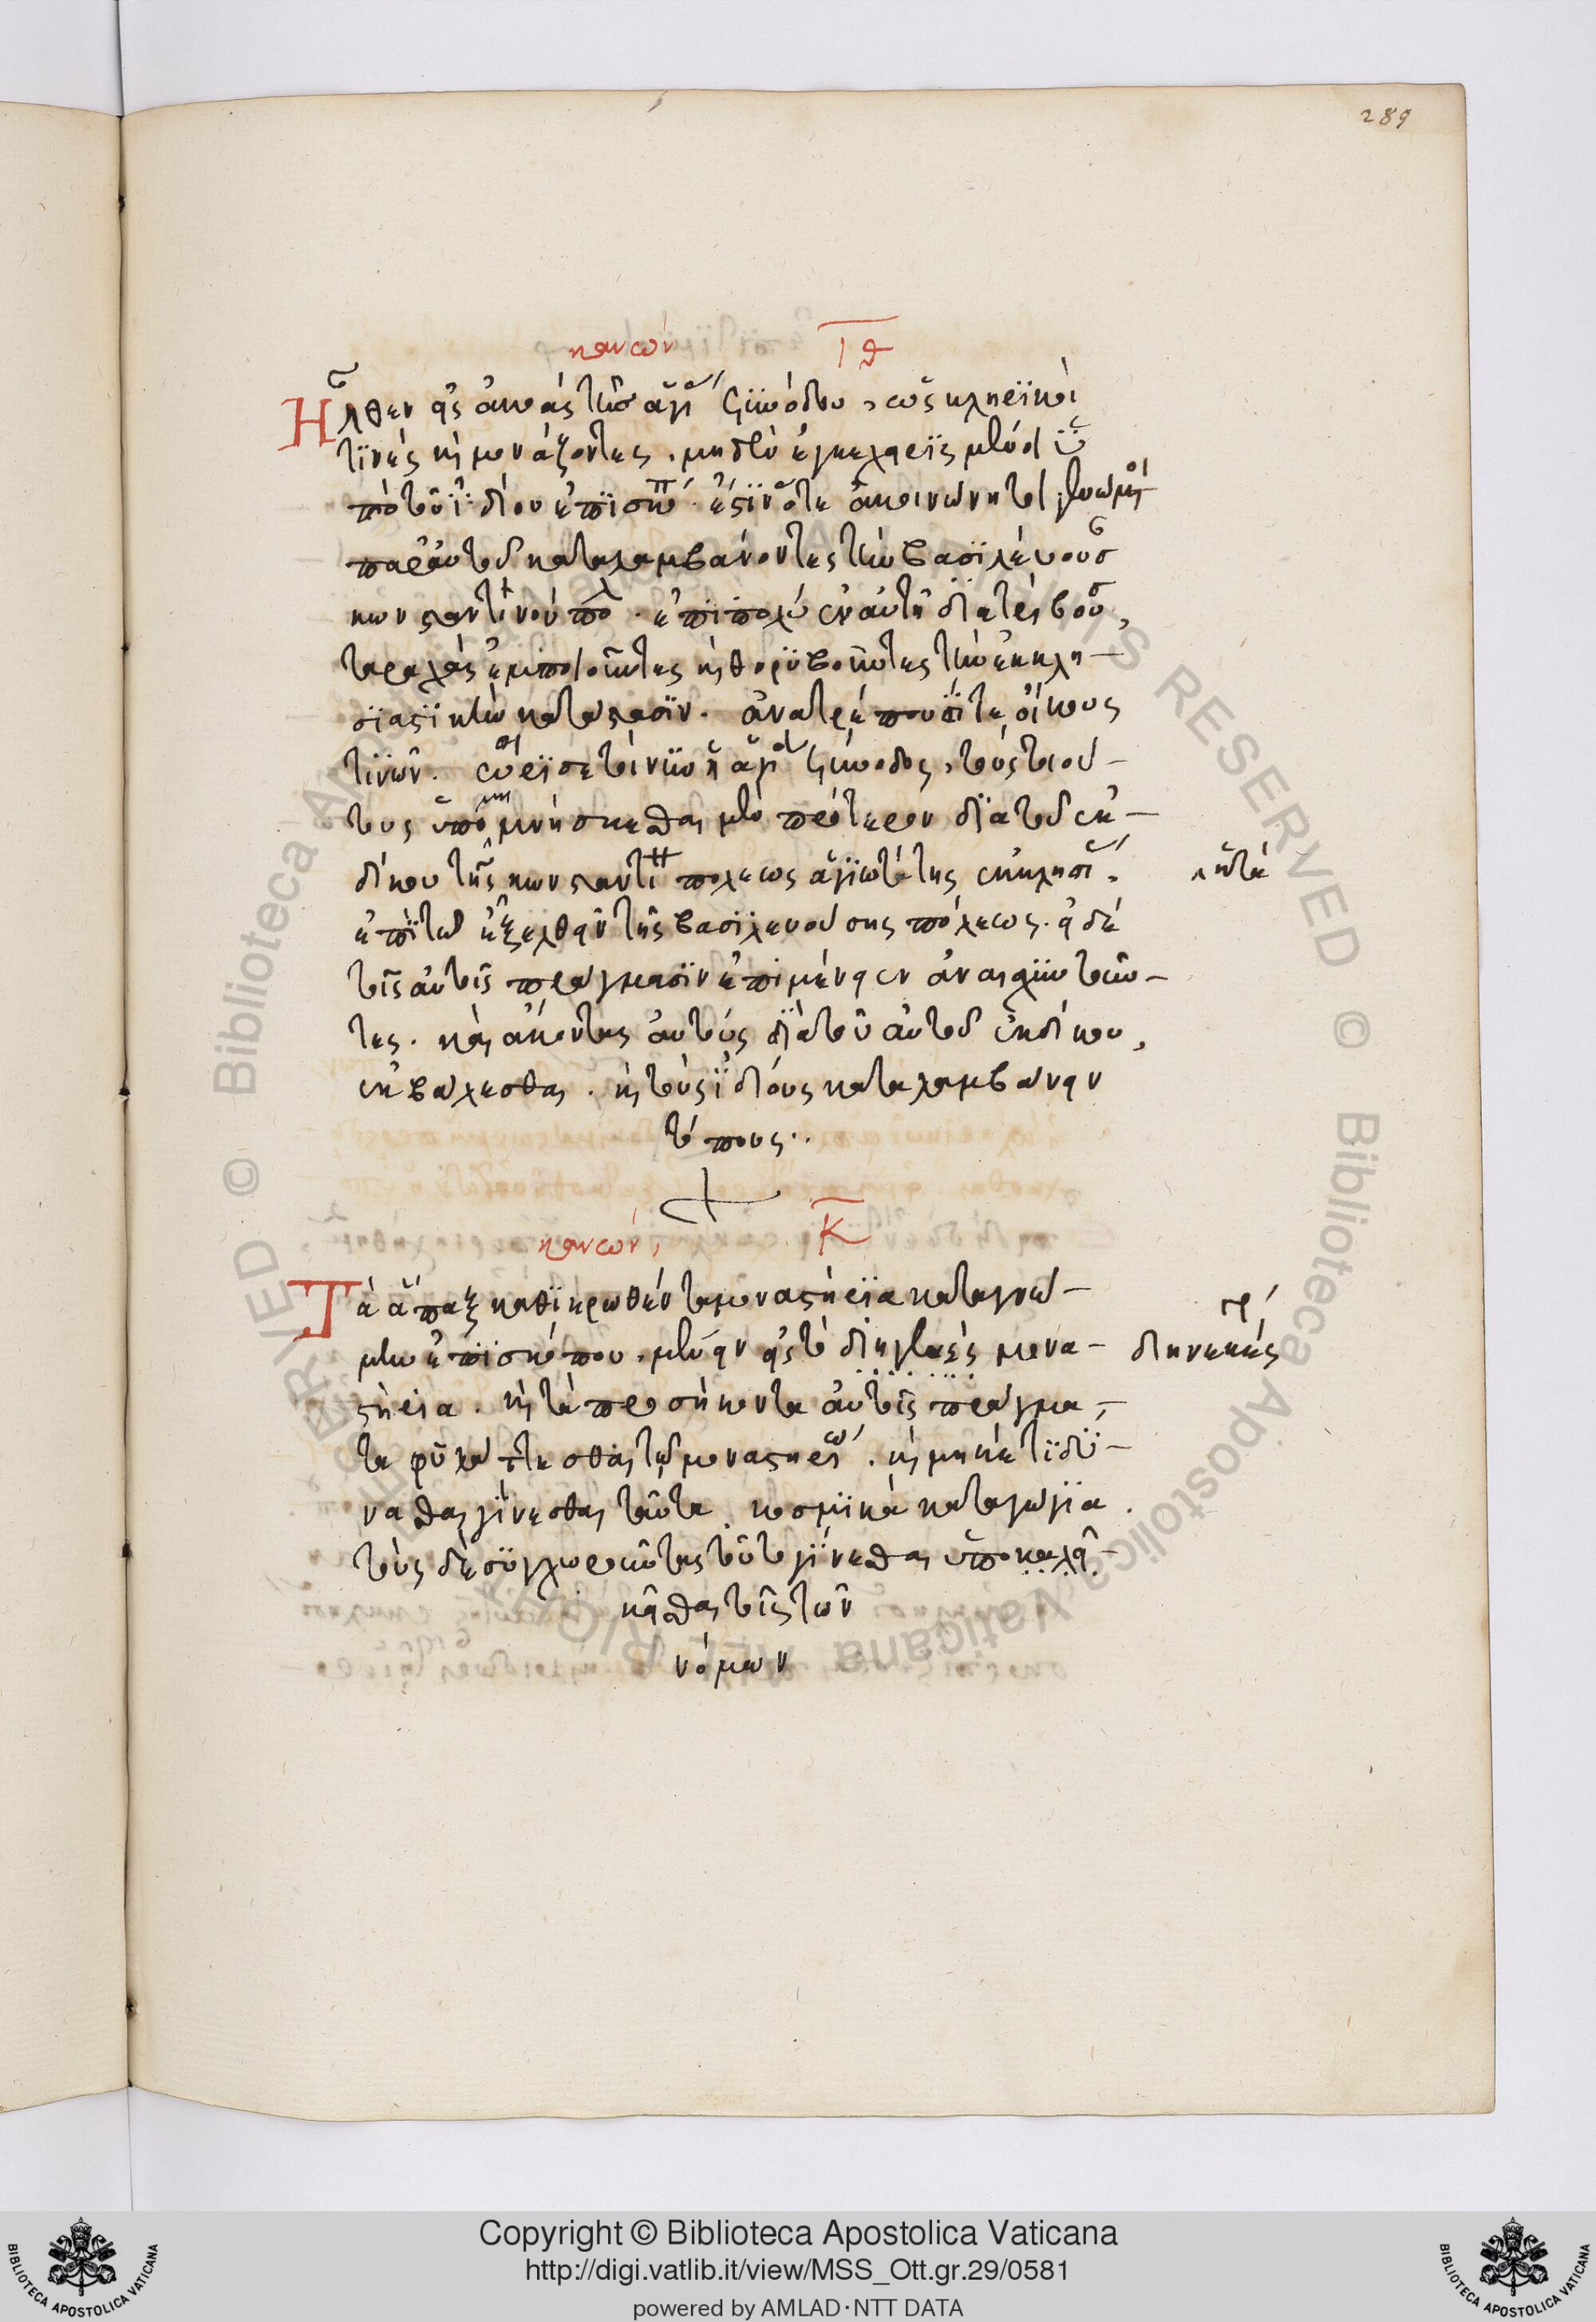 289
κανών ΙΘ
Ἦλθεν εἰς ἀκοὰς τῆς ἁγί συνόδου, ὡς κληρϊκοί
τϊνὲς καὶ μονάζοντες, μηδὲν ἐγκεχειρϊσμένοι ὑ
πὸ τοῦ ἰδίου ἐπϊσκόπ. ἔστϊν ὅτε ἀκοινώνητοι γενόμε
παρ' αὐτοῦ καταλαμβάνοντες τὴν βασϊλέυουσ
κωνσταντϊνούπολ. ἐπὶ πολὺ ἐν αὐτῆ διατρίβου,
ταραχὰς ἐμποιοῦντες καὶ θορϋβοῦντες τὴν ἐκκλη
σϊαστϊκὴν κατάστασϊν. ἀνατρέπουσΐ τε οἴκους
τϊνῶν. ὥρϊσε τοίνϋν ἡ ἁγία σύνοδος, τοὺς τοιού
τους ὑπομϊμνήσκεσθαι μὲν πρότερον δϊὰ τοῦ ἐκ
δίκου τῆς κωνσταντϊνουπόλεως ἁγϊωτάτης ἐκκλησϊ.
ἐπὶ τῶ ἐξελθεῖν τῆς βασϊλευούσης πόλεως. εἰ δὲ
τοῖς αὐτοῖς πράγμασϊν ἐπιμένειεν ἀναισχϋντοῦν
τες. καὶ ἄκοντας αὐτοὺς δϊὰ τοῦ αὐτοῦ ἐκδίκου,
ἐκβάλεσθαι. καὶ τοὺς ἰδίους καταλαμβάνειν
τόπους..
κανών, Κ
Τὰ ἅπαξ καθϊερωθέντα μοναστήρϊα κατὰ γνώ
μην ἐπϊσκόπου, μένειν εἰς τὸ διηγλεὲς μονα
διηνεκὲς
στήρια. καὶ τὰ προσήκοντα αὐτοῖς πράγμα,
τα φϋλάττεσθαι τῶ μοναστηρίω. καὶ μηκέτϊ δύ
νασθαι γίνεσθαι ταῦτα κοσμϊκὰ καταγώγϊα.
τοὺς δὲ σϋγχωροῦντας τοῦτο γίνεσθαι ὑποκαλεῖ
κεῖσθαι τοῖς τῶν
νόμων
Copyright © Biblioteca Apostolica Vaticana
http://digi.vatlib.it/view/MSS_Ott.gr.29/0581
powered by AMLAD·NTT DATA